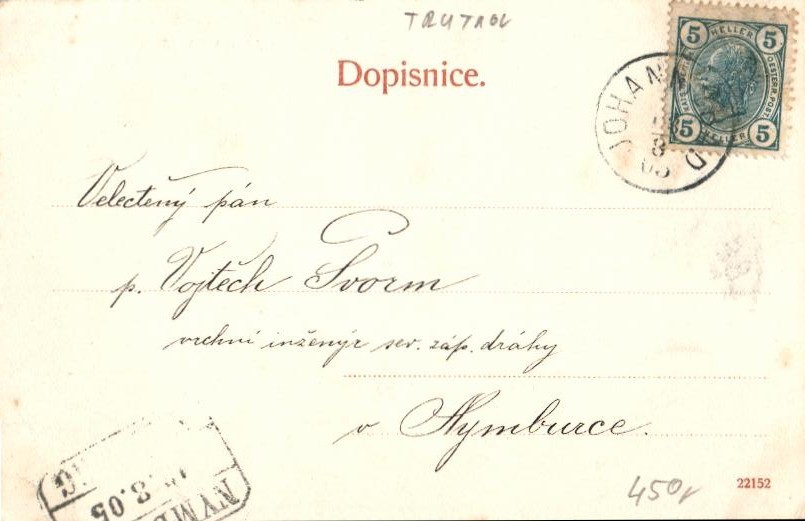 TRUTNOV
Dopisnice.
5 HELLER 5
5 HELLER 5
JOHANN
8
05
Velectěný pán
p. Vojtěch Švorm
vrchní inženýr sev. záp. dráhy
v Nymburce.
8.05
NYMB
450,-
22152